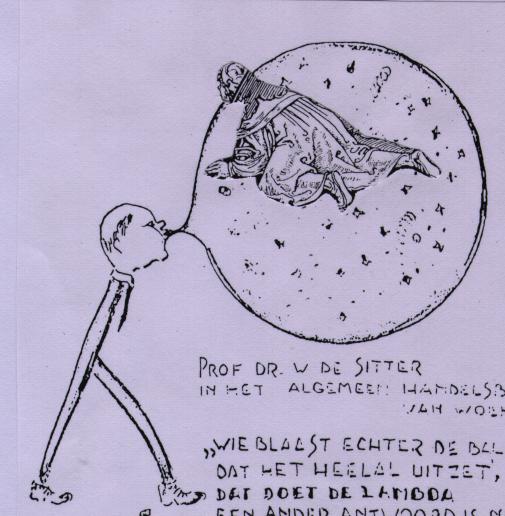 PROF DR. W DE SITTER
IN HET ALGEMEEN HANDELSB
VAN WOE
„WIE BLAAST ECHTER DE BAL
DAT HET HEELAL UITZET',
DAT DOET DE LAMBDA
EEN ANDER ANTWOORD IS N